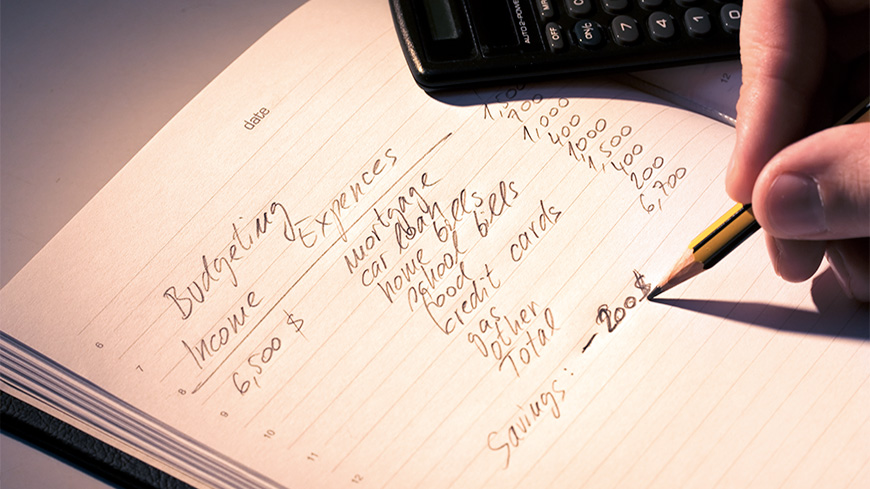 AUTO 2-POWER
OFF
7
4
1
0
date
Budgeting
Income Expences
6,500 $
mortgage 1,500
car loan 700
home bills 1,000
school bills 400
food 1000
credit cards 1,500
gas 400
other 200
Total 6,700
Savings: - 200$
6
7
8
9
10
11
12
12